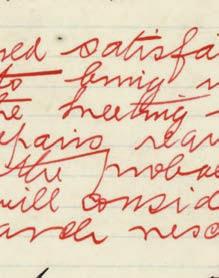 ned satisfa
to bring
the meeting
epairs requ
the probab
will consid